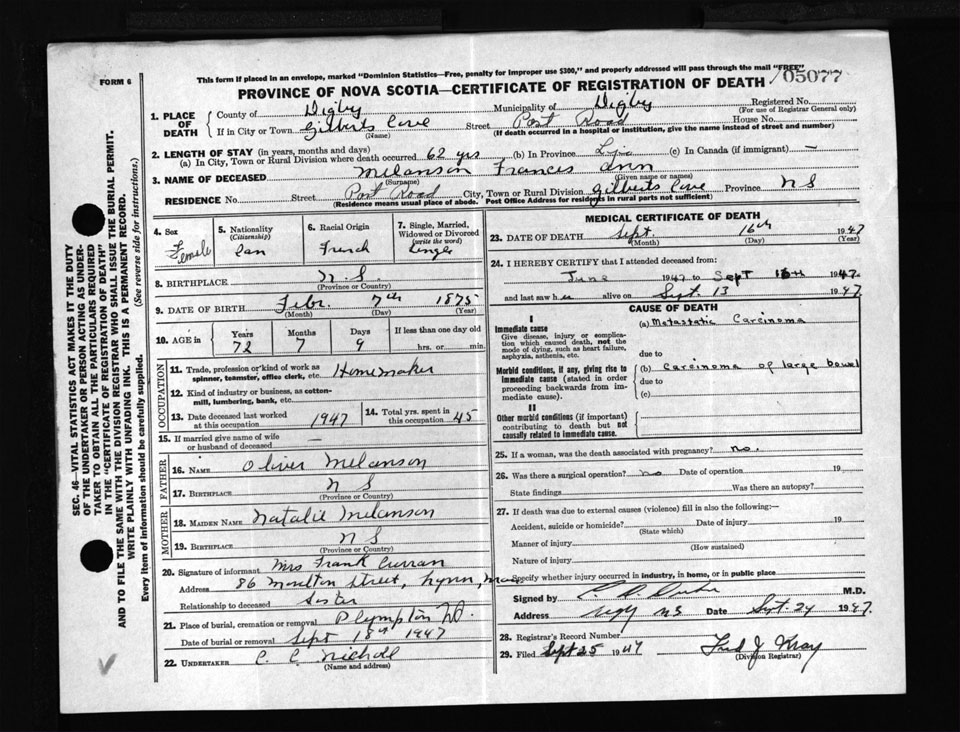 FORM 6
This form if placed in an envelope, marked "Dominion Statistics—Free, penalty for improper use $300," and properly addressed will pass through the mail "FREE"
105077
PROVINCE OF NOVA SCOTIA—CERTIFICATE OF REGISTRATION OF DEATH
1. PLACE OF DEATH
County of Digby Municipality of Digby Registered No.
(For use of Registrar General only)
If in City or Town Gilberts Cove Street Post Road House No.
(Name) (If death occurred in a hospital or institution, give the name instead of street and number)
2. LENGTH OF STAY (in years, months and days)
(a) In City, Town or Rural Division where death occurred 62 yrs (b) In Province (c) In Canada (if immigrant) —
3. NAME OF DECEASED Melanson Frances Ann
(Surname) (Given name or names)
RESIDENCE No. Street Post Road City, Town or Rural Division Gilberts Cove Province N S
(Residence means usual place of abode. Post Office Address for residents in rural parts not sufficient)
4. Sex Female
5. Nationality (Citizenship) Can
6. Racial Origin French
7. Single, Married, Widowed or Divorced (write the word)
8. BIRTHPLACE N. S.
(Province or Country)
9. DATE OF BIRTH Febr. 7th 1875
(Month) (Day) (Year)
10. AGE in Years 72 Months 7 Days 9 If less than one day old hrs. or min.
OCCUPATION
11. Trade, profession or kind of work as spinner, teamster, office clerk, etc. Homemaker
12. Kind of industry or business, as cotton-mill, lumbering, bank, etc.
13. Date deceased last worked at this occupation 1947
14. Total yrs. spent in this occupation 45
15. If married give name of wife or husband of deceased —
FATHER
16. NAME Oliver Melanson
17. BIRTHPLACE N S
(Province or Country)
MOTHER
18. MAIDEN NAME Natalie Melanson
19. BIRTHPLACE N S
(Province or Country)
20. Signature of informant Mrs Frank Curran
Address 86 Moulton Street, Lynn, Mass
Relationship to deceased Sister
21. Place of burial, cremation or removal Plympton
Date of burial or removal Sept 18th 1947
22. UNDERTAKER C. C. Nicholl
(Name and address)
MEDICAL CERTIFICATE OF DEATH
23. DATE OF DEATH Sept. 16th 1947
(Month) (Day) (Year)
24. I HEREBY CERTIFY that I attended deceased from:
June 1947 to Sept 16th 1947
and last saw her alive on Sept. 13 1947
CAUSE OF DEATH
I
Immediate cause
Give disease, injury or complication which caused death, not the mode of dying, such as heart failure, asphyxia, asthenia, etc.
(a) Metastatic Carcinoma
due to
Morbid conditions, if any, giving rise to immediate cause (stated in order proceeding backwards from immediate cause).
(b) Carcinoma of large bowel
due to
(c)
II
Other morbid conditions (if important) contributing to death but not causally related to immediate cause.
25. If a woman, was the death associated with pregnancy? no.
26. Was there a surgical operation? no Date of operation 19
State findings Was there an autopsy?
27. If death was due to external causes (violence) fill in also the following:—
Accident, suicide or homicide? Date of injury 19
(State which)
Manner of injury
(How sustained)
Nature of injury
Specify whether injury occurred in industry, in home, or in public place
Signed by M.D.
Address N S Date Sept. 24 1947
28. Registrar's Record Number
29. Filed Sept 25 1947 Fred J. Kray
(Division Registrar)
SEC. 46—VITAL STATISTICS ACT MAKES IT THE DUTY
OF THE UNDERTAKER OR PERSON ACTING AS UNDER-
TAKER TO OBTAIN ALL THE PARTICULARS REQUIRED
IN THE "CERTIFICATE OF REGISTRATION OF DEATH"
AND TO FILE THE SAME WITH THE DIVISION REGISTRAR WHO SHALL ISSUE THE BURIAL PERMIT.
WRITE PLAINLY WITH UNFADING INK. THIS IS A PERMANENT RECORD.
Every item of information should be carefully supplied. (See reverse side for instructions.)